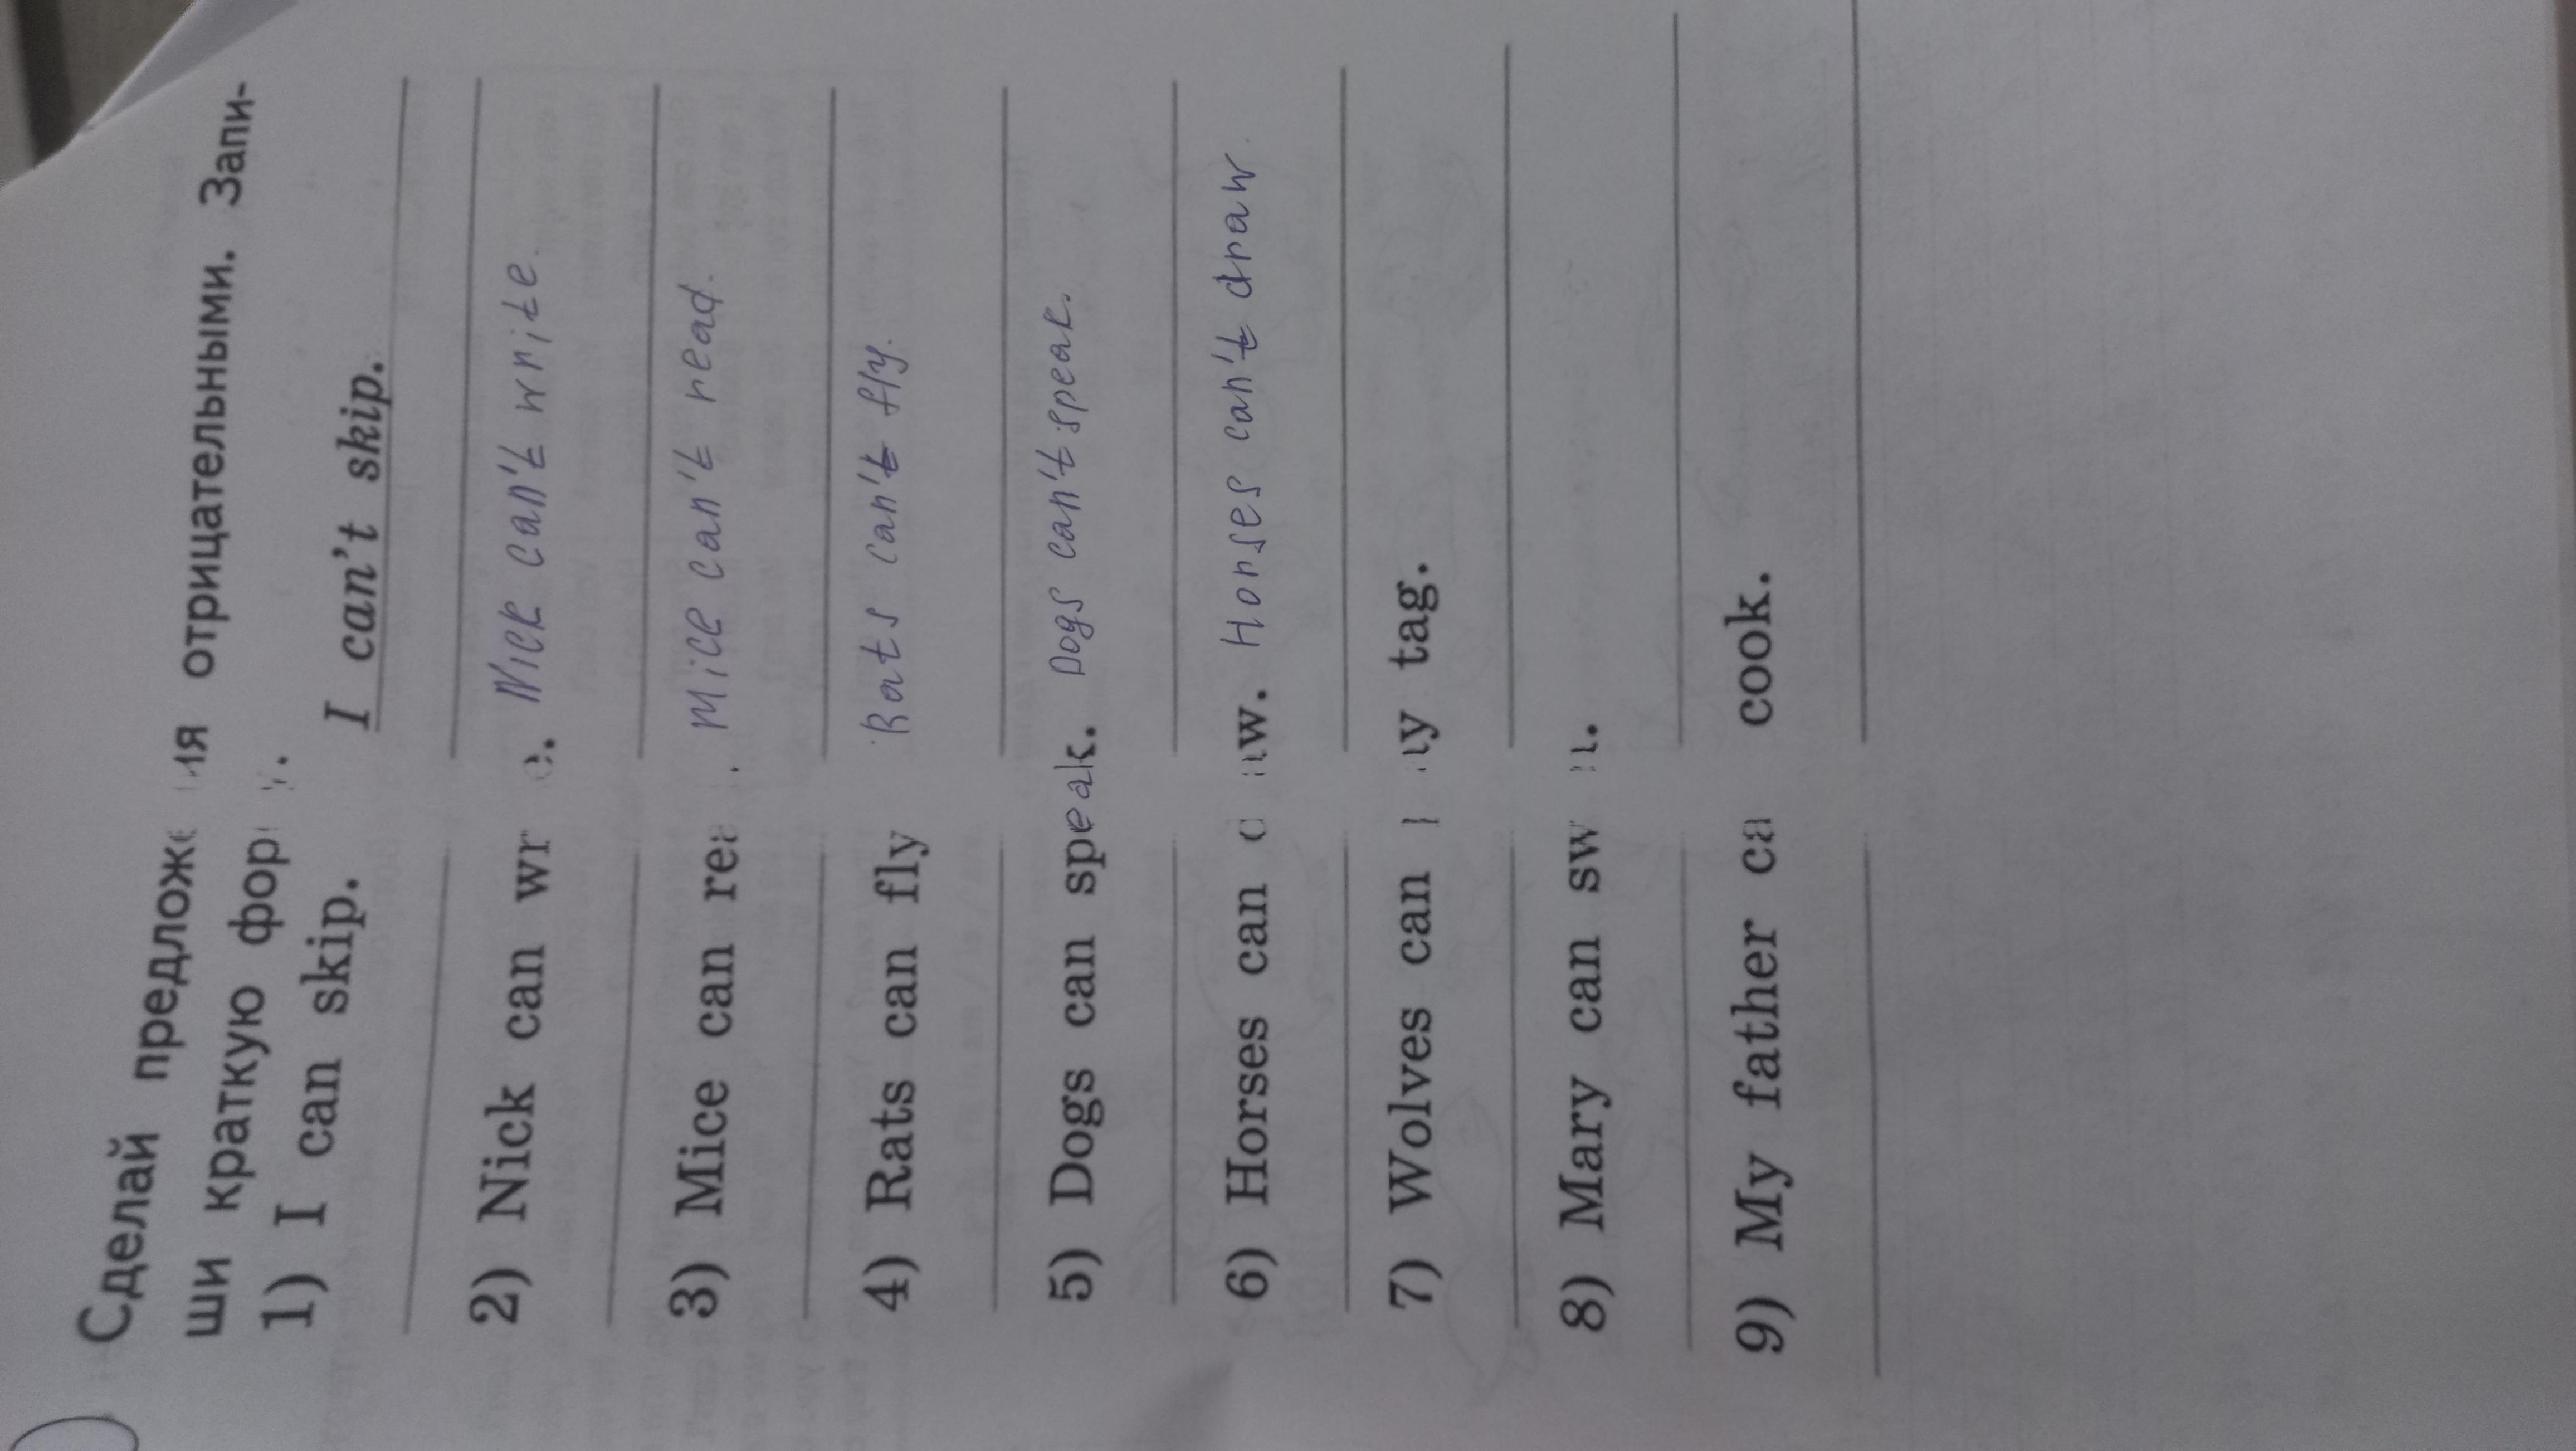 Сделай предложе ия отрицательными. Запи-
ши краткую фор у.
1) I can skip. I can't skip.
2) Nick can wr e. Nick can't write.
3) Mice can rea . Mice can't read.
4) Rats can fly Rats can't fly.
5) Dogs can speak. Dogs can't speak.
6) Horses can d aw. Horses can't draw.
7) Wolves can p ay tag.
8) Mary can sw m.
9) My father ca cook.